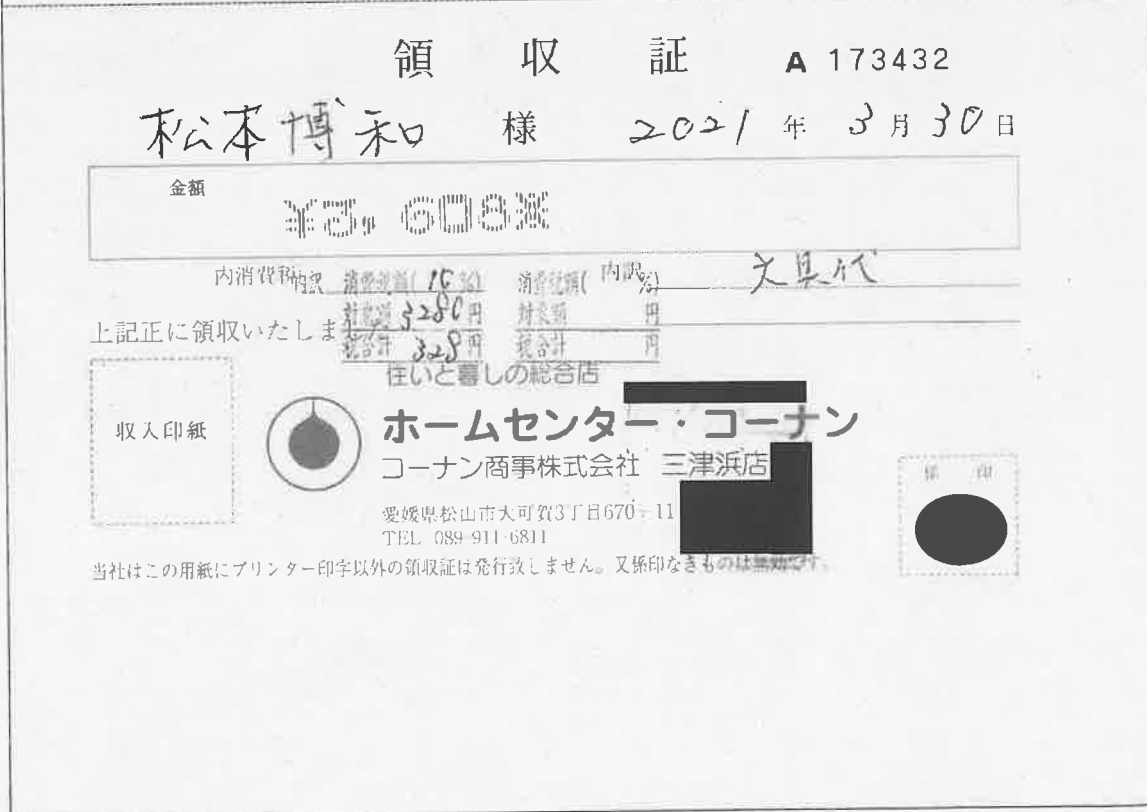 領収証 A 173432
松本博和 様 2021 年 3 月 30 日
金額
¥3,608※
内消費税 内訳 文具代
内訳 消費税額(10%) 消費税額( %)
対象額 3280円 対象額 円
税合計 328円 税合計 円
上記正に領収いたしました
住いと暮しの総合店
収入印紙
ホームセンター・コーナン
コーナン商事株式会社 三津浜店
係印
愛媛県松山市大可賀3丁目670-11
TEL 089-911-6811
当社はこの用紙にプリンター印字以外の領収証は発行致しません。又係印なきものは無効です。